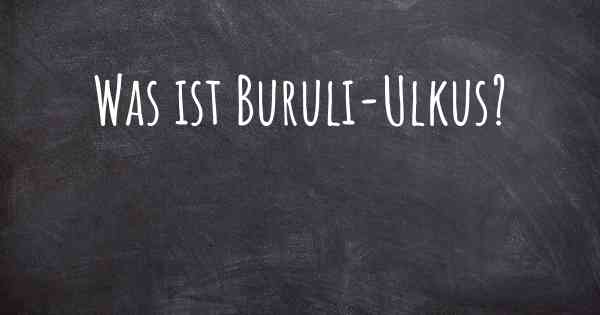 Was ist Buruli-Ulkus?